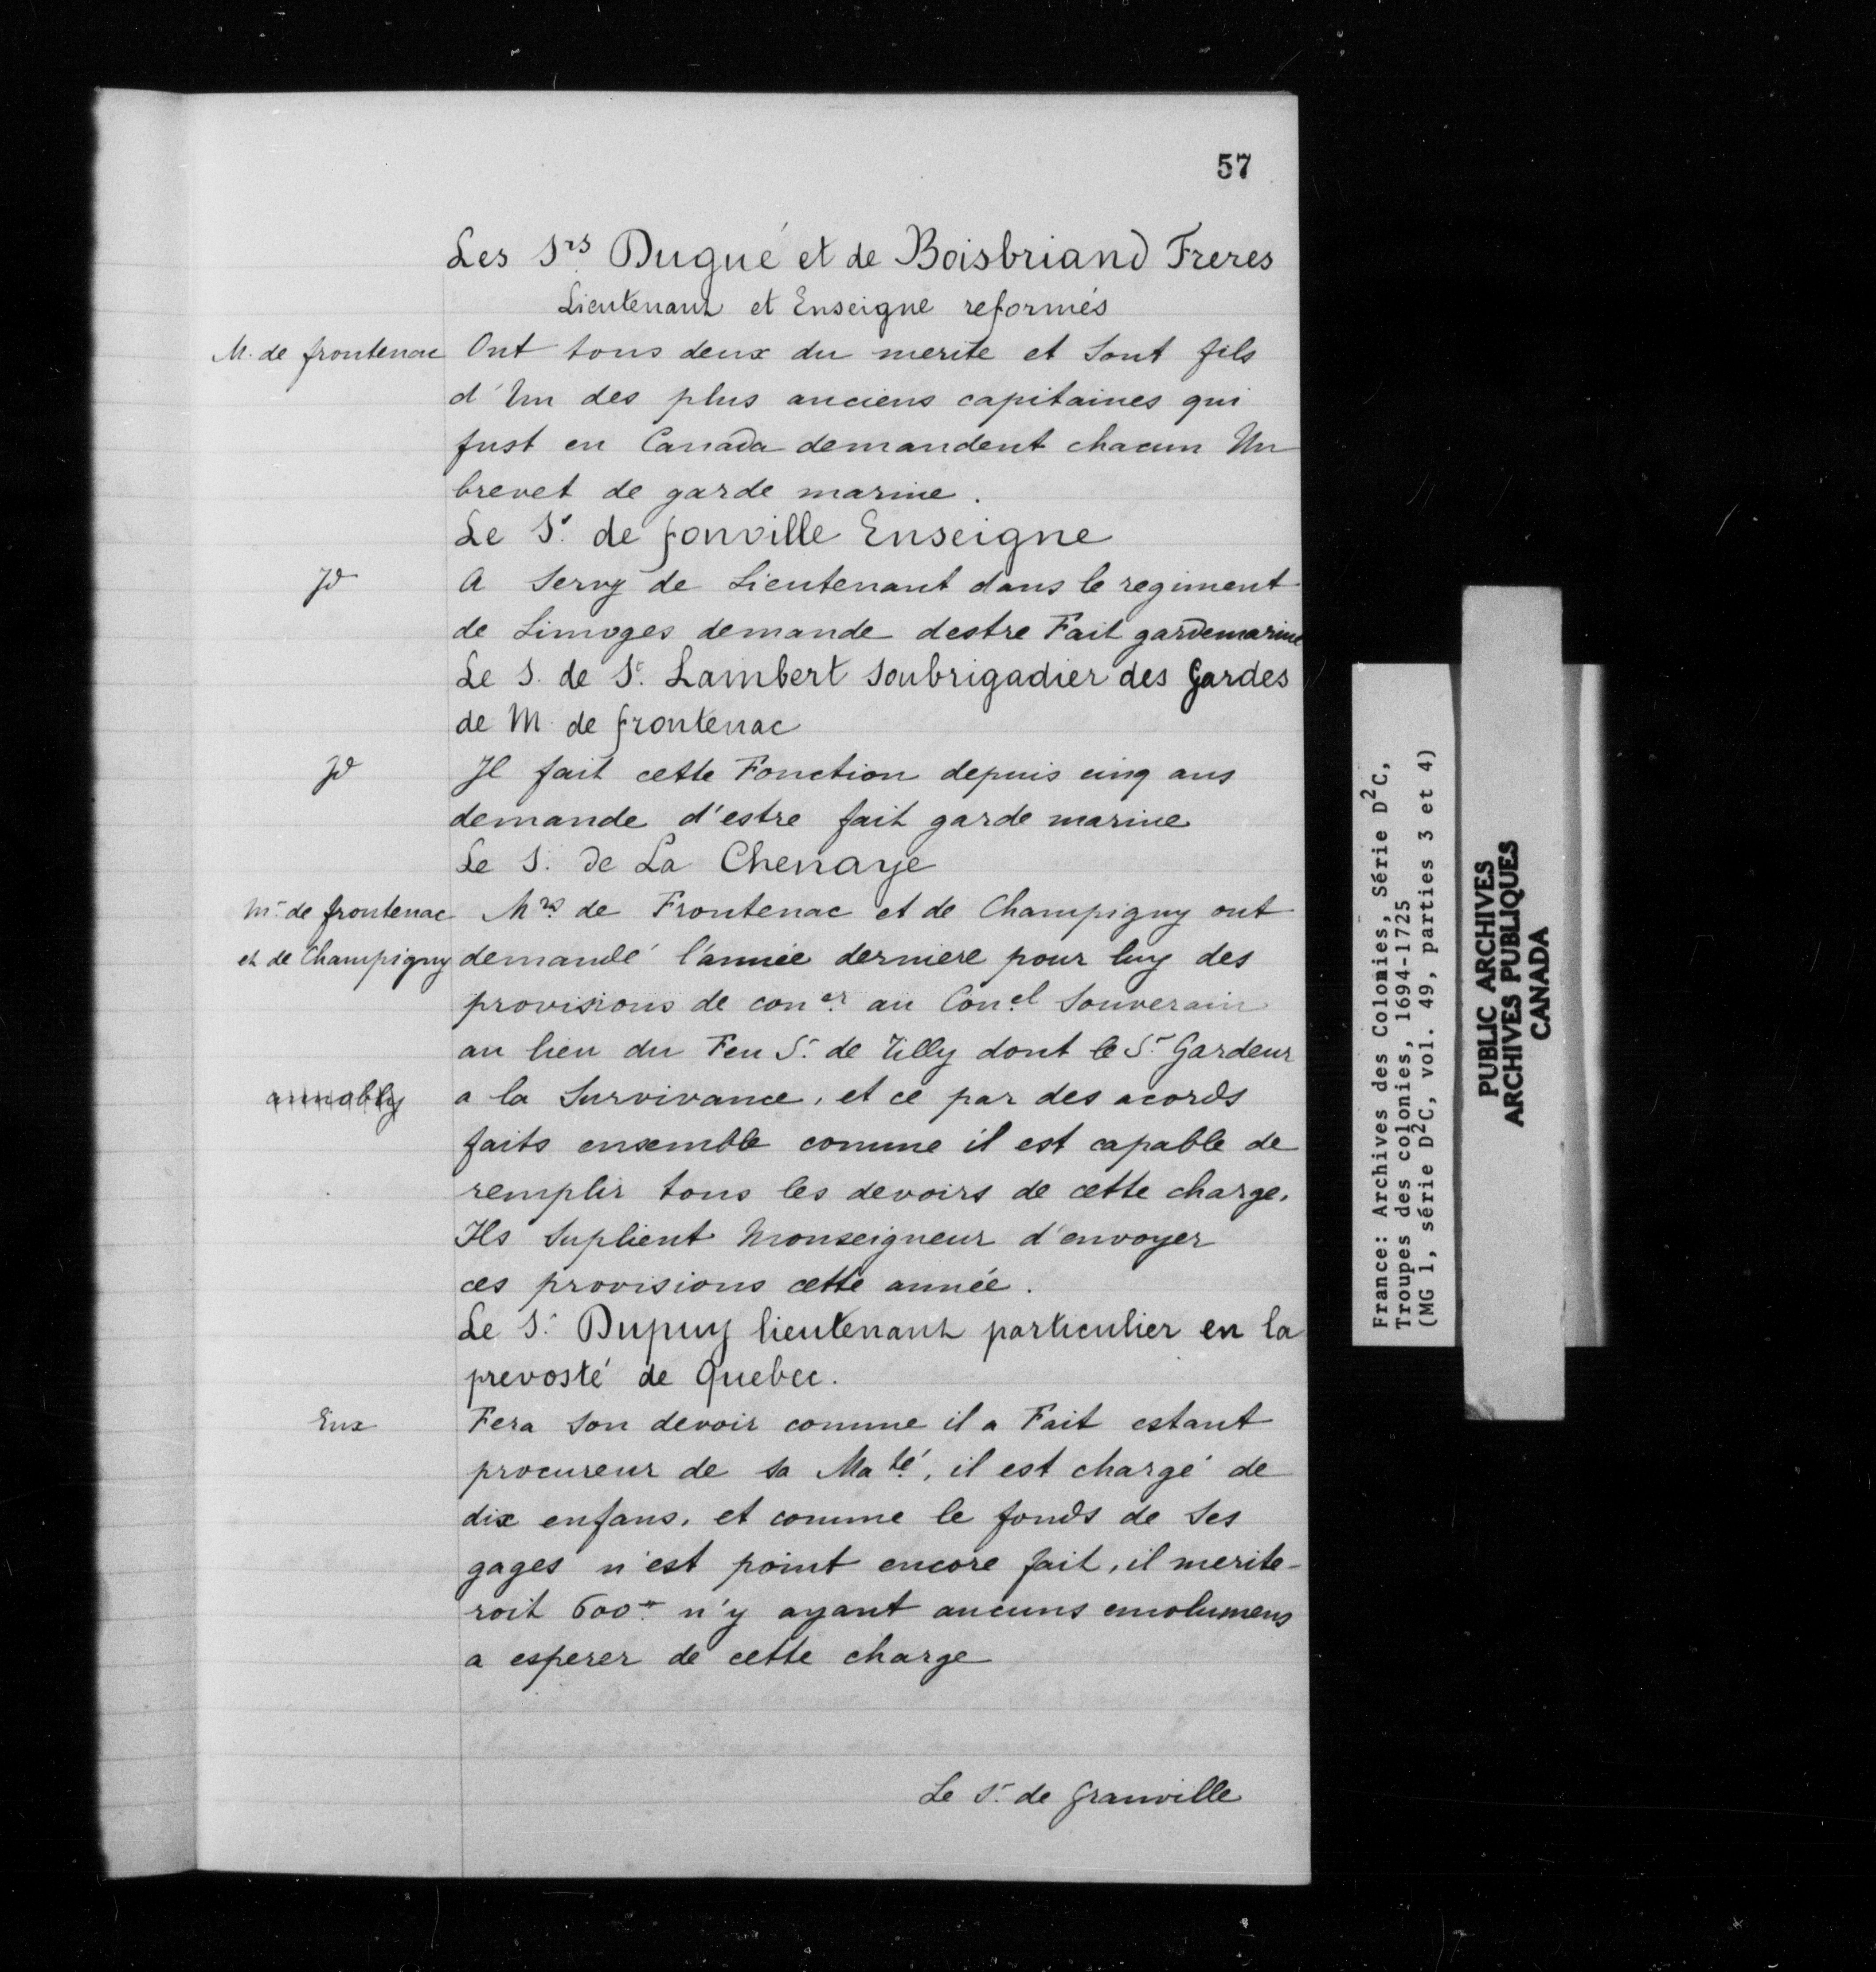 57
Les Srs Dugué et de Boisbriand Freres
Lieutenant et Enseigne reformés
M. de frontenac Ont tous deux du merite et sont fils
d'Un des plus anciens capitaines qui
fust en Canada demandent chacun Un
brevet de garde marine.
Le Sr. de Jonville Enseigne
Jd A servy de Lieutenant dans le regiment
de Limoges demande destre Fait gardemarine
Le S. de St. Lambert soubrigadier des Gardes
de M. de frontenac
Jd Jl fait cette Fonction depuis cinq ans
demande d'estre fait garde marine
Le S. de La Chenaye
Mr. de frontenac Mrs de Frontenac et de Champigny ont
et de Champigny demandé l'année derniere pour luy des
provisions de coner. au Conel. Souverain
au lieu du Feu Sr. de Tilly dont le Sr. Gardeur
a la Survivance, et ce par des acords
faits ensemble comme il est capable de
remplir tous les devoirs de cette charge.
Ils Suplient Monseigneur d'envoyer
ces provisions cette année.
Le Sr. Dupuy lieutenant particulier en la
prevosté de Quebec.
Eux Fera son devoir comme il a Fait estant
procureur de sa Maté, il est chargé de
dix enfans, et comme le fonds de ses
gages n'est point encore fait, il merite-
roit 600tt n'y ayant aucuns emolumens
a esperer de cette charge
Le Sr. de Granville
France: Archives des Colonies, Série D2C,
Troupes des colonies, 1694-1725
(MG 1, série D2C, vol. 49, parties 3 et 4)
PUBLIC ARCHIVES
ARCHIVES PUBLIQUES
CANADA